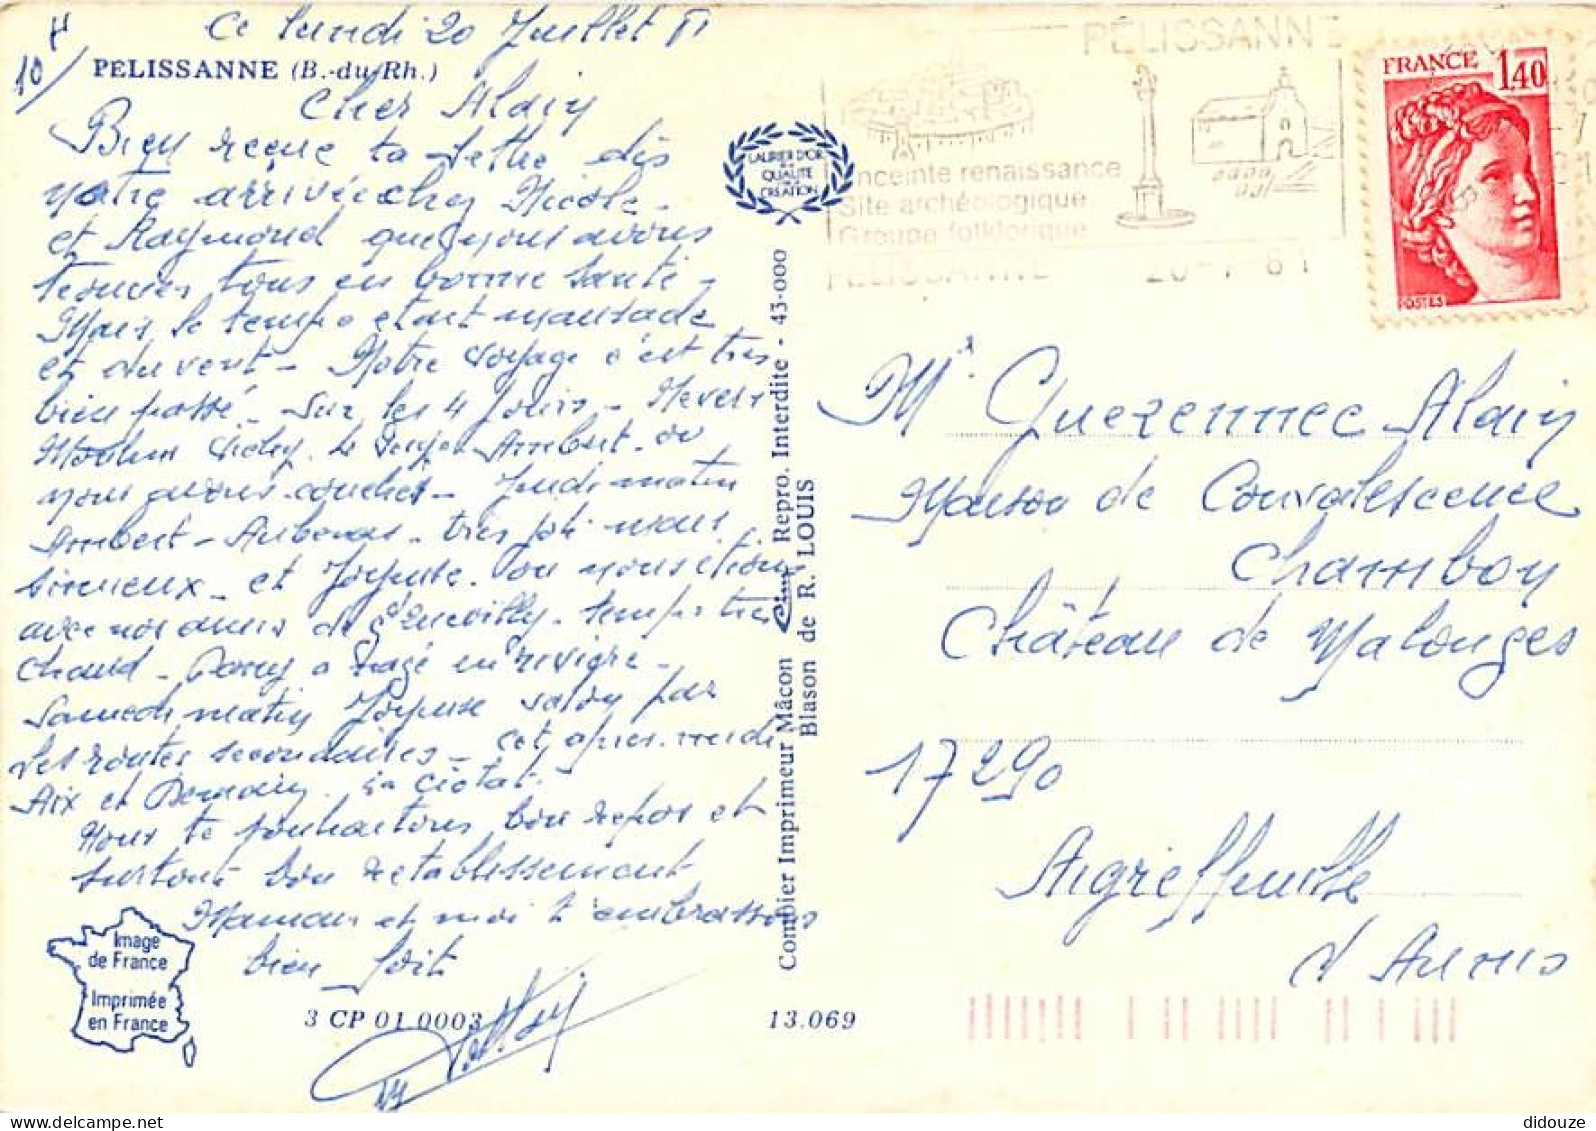 Ce lundi 20 Juillet 81
10 H
PÉLISSANNE (B.-du-Rh.)
Cher Alain
Bien reçue ta lettre dès
notre arrivée chez Nicole
et Raymond que nous avons
trouvés tous en bonne santé -
Mais le temps était maussade
et du vent - Notre voyage c'est très
bien passé - Sur les 4 jours - Nevers
Moulins Vichy. Ambert - où
nous avons couchés - Jeudi matin
Ambert - Aubenas - très joli mais
sinueux - et Joyeuse. ou nous étions
avec nos amis de temps très
chaud - a nagé en rivière -
Samedi matin Joyeuse Salon par
les routes secondaires - cet après-midi
Aix et Demain La Ciotat.
Nous te souhaitons bon repos et
surtout bon retablissement
Maman et moi t'embrassons
bien fort
PÉLISSANNE
Enceinte renaissance
Site archéologique
Groupe folklorique
PELISSANNE 20-7-81
FRANCE 1,40
POSTES
LAURIER D'OR
DE LA
QUALITÉ
CRÉATION
Combier Imprimeur Mâcon Cim Repro. Interdite - 43-000
Blason de R. LOUIS
Mr. Guezennec Alain
Maison de Convalescence
Chambon
Château de Malonges
17290
Aigrefeuille
d'Aunis
Image
de France
Imprimée
en France
3 CP 01 0003
13.069
didouze
delcampe.net